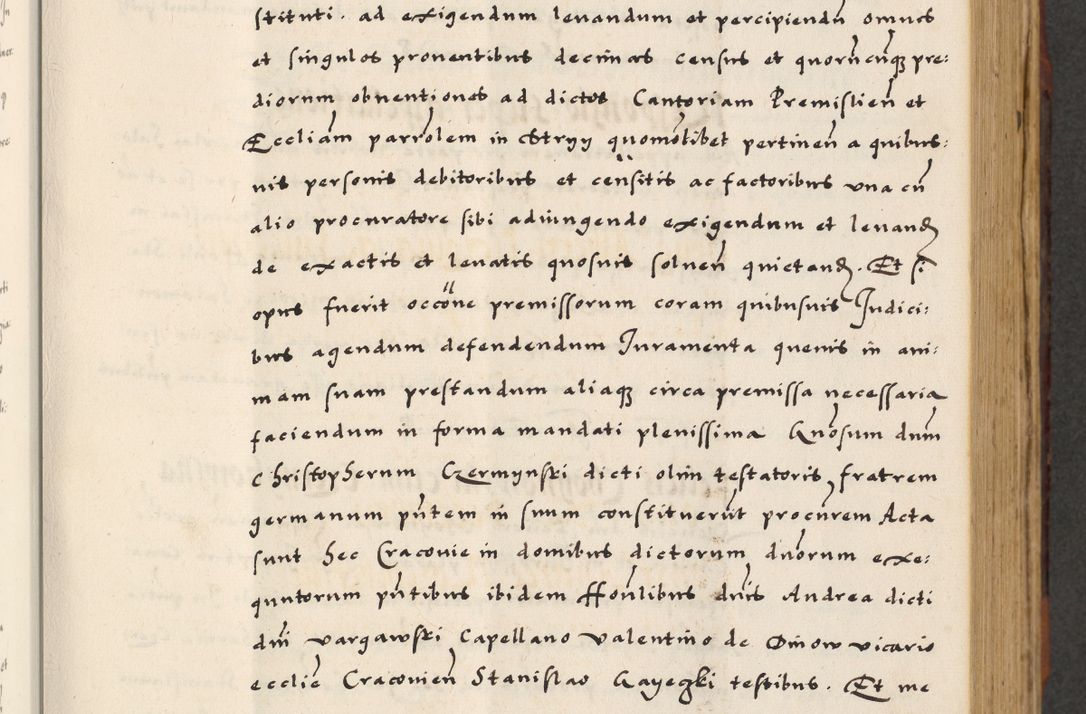 stituti . ad exigendum levandum et percipiendū omnes
et singulos proventibus decimas census et quorūcūqꝫ pre:
diorum obventiones ad dictos Cantoriam Premislien̄ et
Eccliam parrolem in Stryy quomolibet pertinen̄ a quibus:
vis personis debitoribus et censitis ac factoribus una cū
alio procuratore sibi adiungendo exigendum et levandꝫ
de exactis et levatis quosvis solven̄ quietandꝫ. Et si
opus fuerit occone premissorum coram quibusvis Judici:
bus agendum defendendum Juramenta quevis in ani:
mam suam prestandum aliaqꝫ circa premissa necessaria
faciendum in forma mandati plenissima Gnosum dnm
Christopherum Czermynski dicti olim testatoris fratrem
germanum pn̄tem in suum constituerūt procurem Acta
sunt hec Cracovie in domibus dictorum dnorum exe:
quutorum pn̄tibus ibidem Honlibus dnis Andrea dicti
dni vargawski Capellano valentino de Omow vicario
ecclie Cracovien̄ Stanislao Gayeczki testibus . Et me